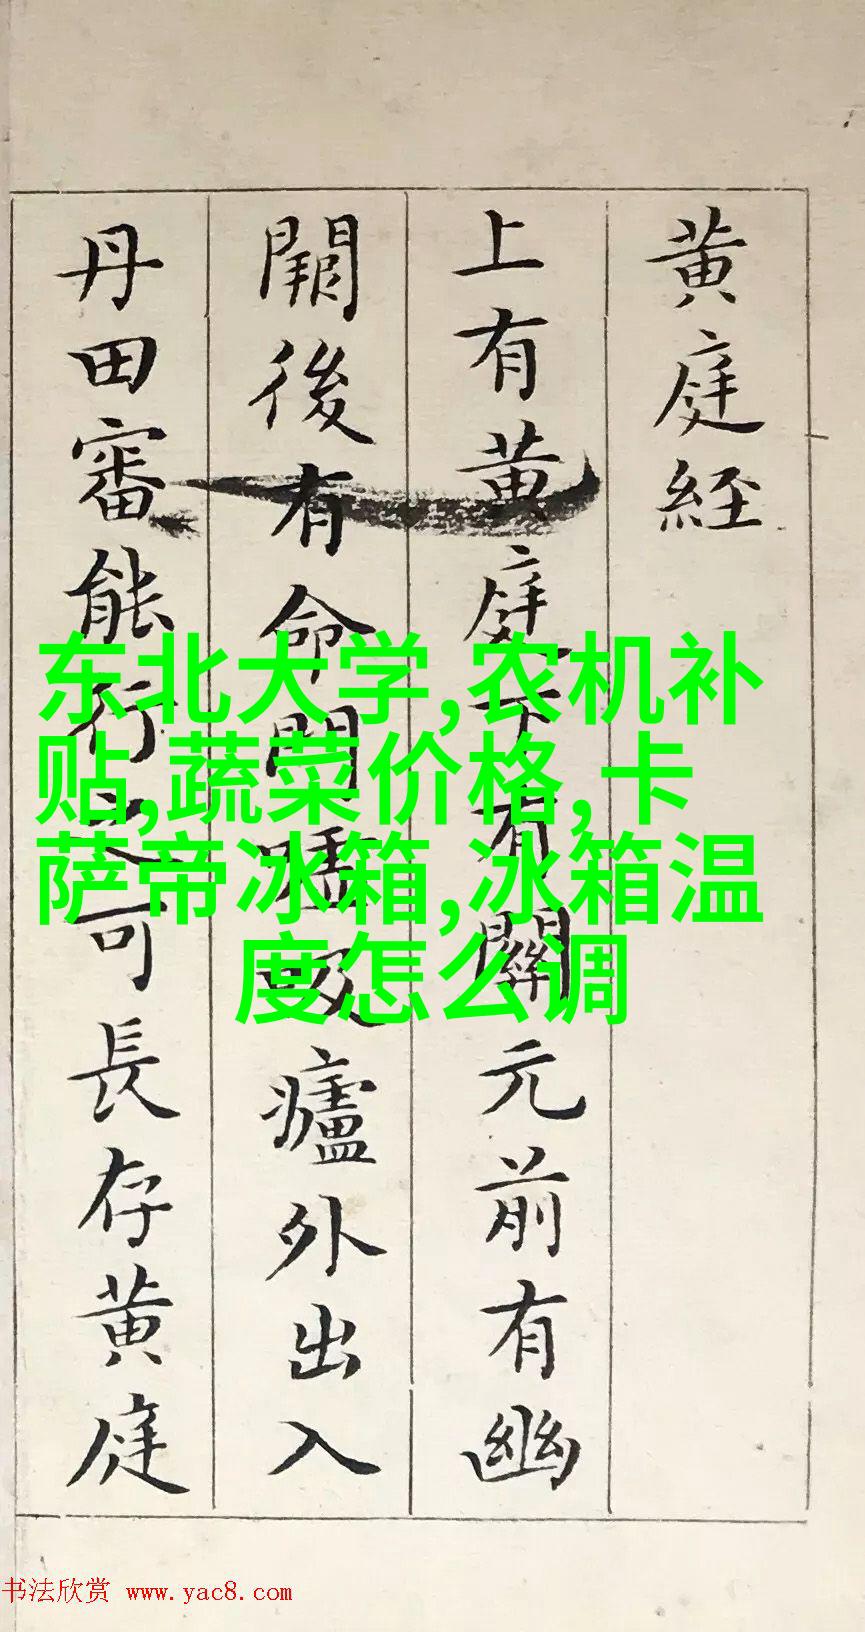 黄庭經
上有黄庭下有關元前有幽
闕後有命門嘘吸廬外出入
丹田審能行之可長存黄庭
东北大学,农机补
贴,蔬菜价格,卡
萨帝冰箱,冰箱温
度怎么调
书法欣赏 www.yac8.com